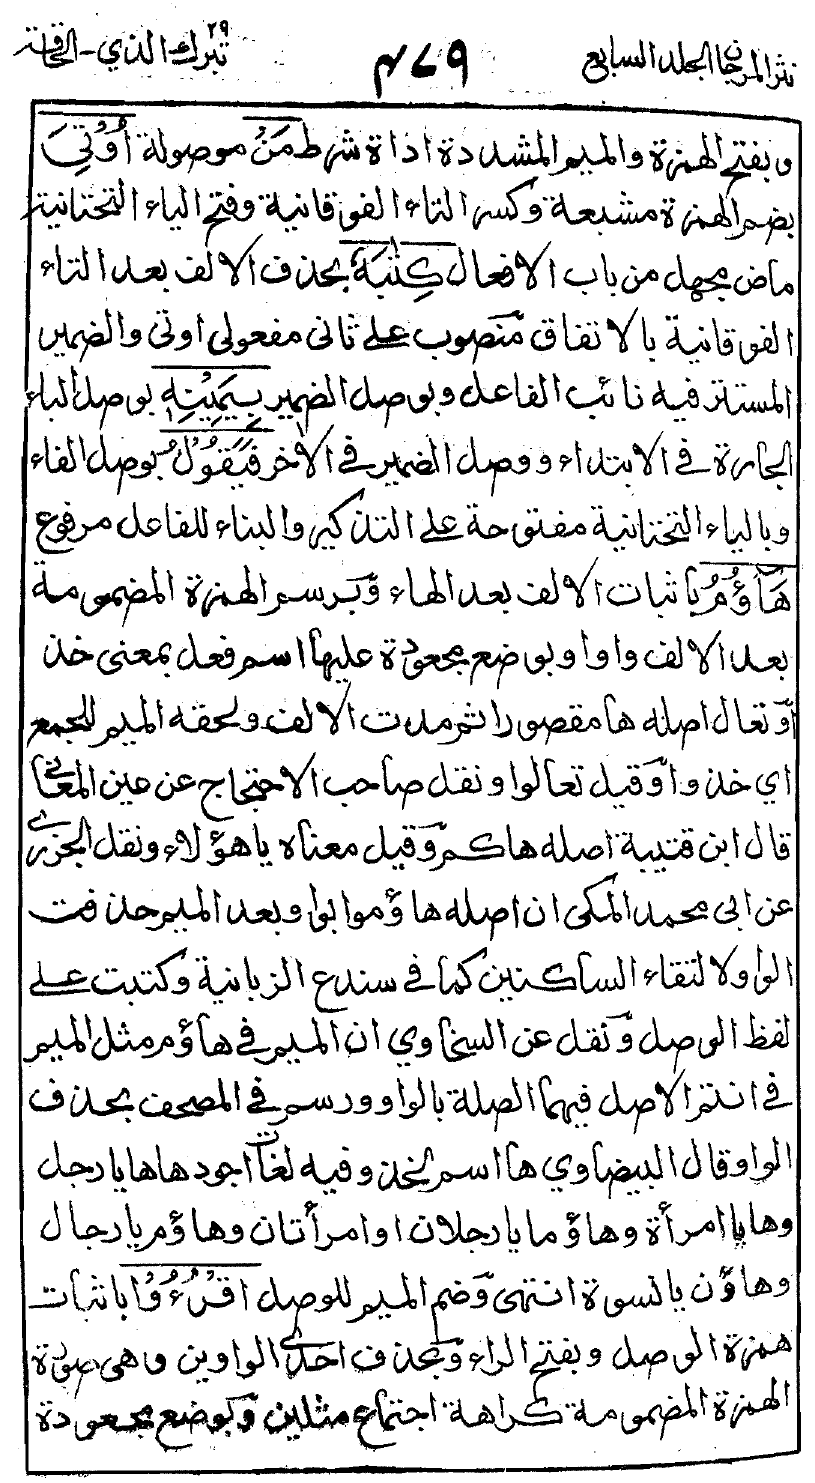 نثر المرجان الجلد السابع
٤٧٩
تبرك الذي ٢٩ - الحاقة
وبفتح الهمزة والميم المشددة اداة شرط مَنْ موصولة اُوْتِيَ
بضم الهمزة مشبعة وكسر التاء الفوقانية وفتح الياء التحتانية
ماض مجهل من باب الافعال كِتٰبَهٗ بحذف الالف بعد التاء
الفوقانية بالاتفاق منصوب على ثانى مفعولى اوتى والضمير
المستتر فيه نائب الفاعل وبوصل الضمير بِيَمِيْنِهٖ بوصل الباء
الجارة في الابتداء ووصل الضمير في الاخر فَيَقُوْلُ بوصل الفاء
وبالياء التحتانية مفتوحة على التذكير والبناء للفاعل مرفوع
هَآؤُمُ باثبات الالف بعد الهاء وبرسم الهمزة المضمومة
بعد الالف واوا وبوضع مجعودة عليها اسم فعل بمعنى خذ
او تعال اصله ها مقصورا ثم مدت الالف ولحقه الميم للجمع
اي خذوا وقيل تعالوا ونقل صاحب الاحتجاج عن عين المعاني
قال ابن قتيبة اصله هاكم وقيل معناه يا هؤلاء ونقل الجزري
عن ابى محمد المكى ان اصله هاؤموا بواو بعد الميم حذفت
الواو لالتقاء الساكنين كما في سندع الزبانية وكتبت على
لفظ الوصل ونقل عن السخاوي ان الميم في هاؤم مثل الميم
في انتم الاصل فيهما الصلة بالواو ورسم في المصحف بحذف
الواو قال البيضاوي ها اسم لخذ وفيه لغات اجودها ها يا رجل
وها يا امرأة وهاؤما يا رجلان او امرأتان وهاؤم يا رجال
وهاؤن يا نسوة انتهى وضم الميم للوصل اقْرَءُوْا باثبات
همزة الوصل وبفتح الراء وبحذف احدى الواوين وهى صورة
الهمزة المضمومة كراهة اجتماع مثلين وبوضع مجعودة